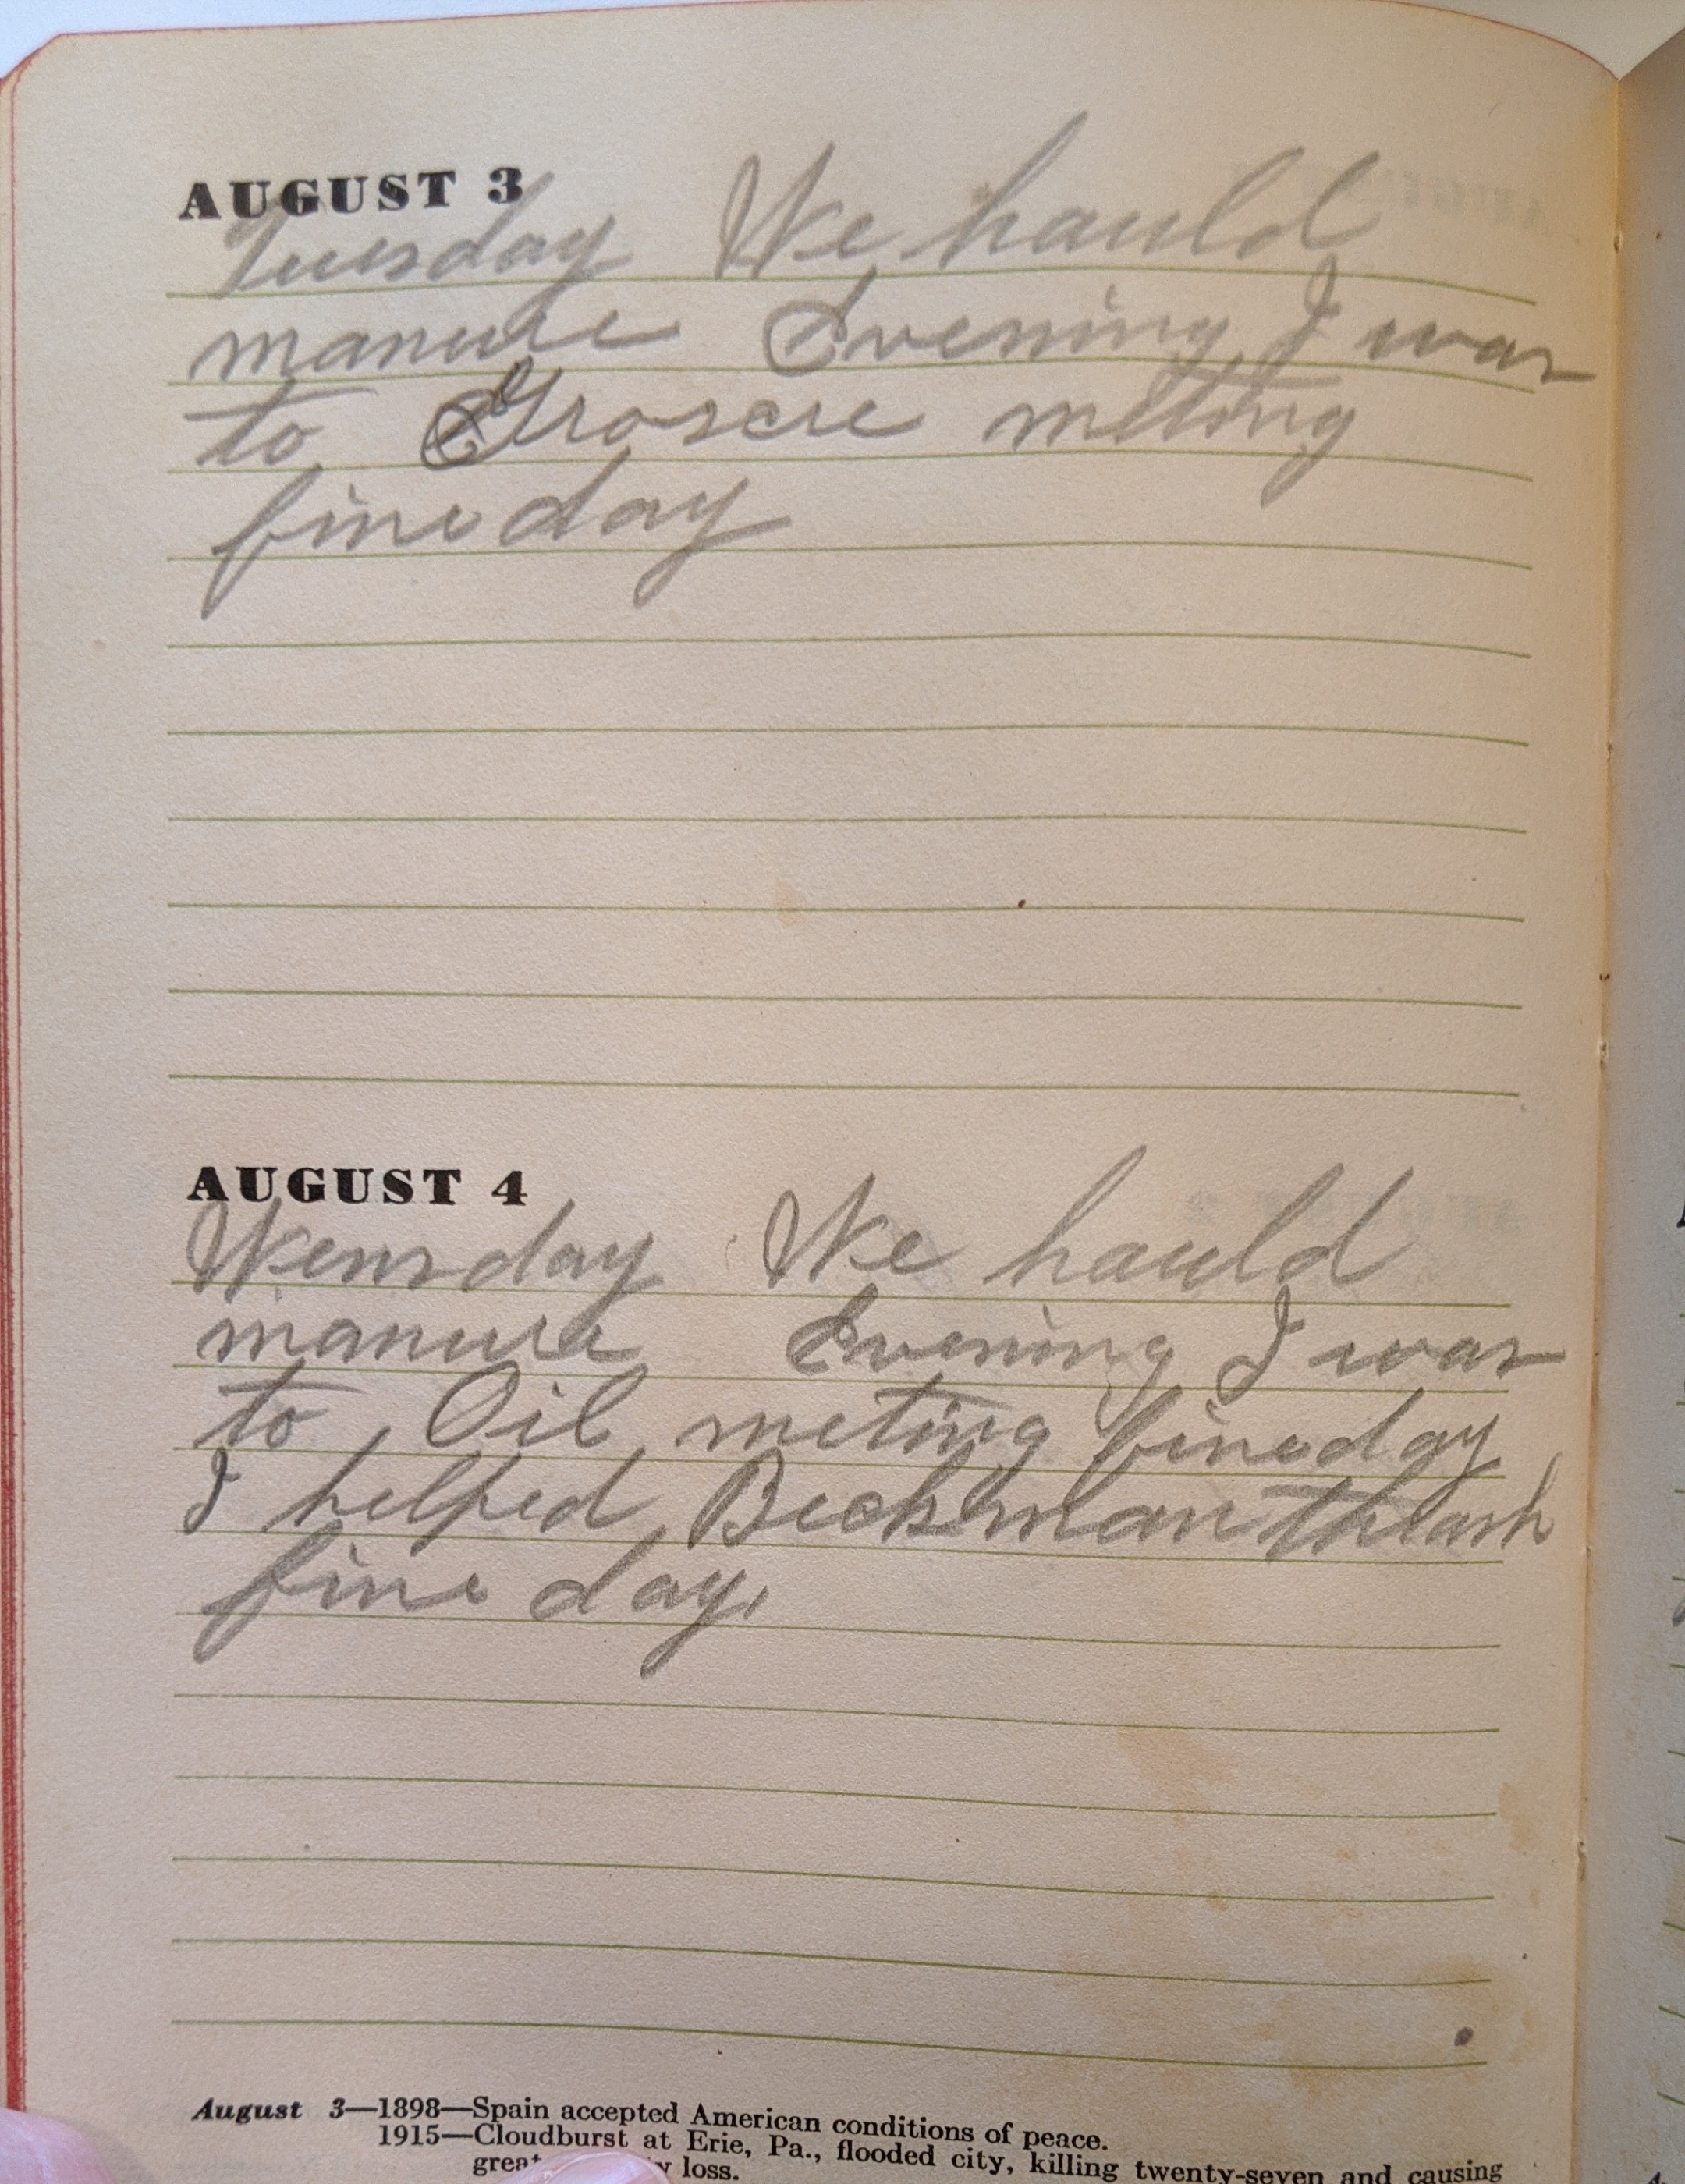 AUGUST 3
Tuesday We hauld
manure Evening I was
to Groscre meting
fine day
AUGUST 4
Wensday We hauld
manure Evening I was
to Oil meting fine day
I helped Beckman thrash
fine day,
August 3—1898—Spain accepted American conditions of peace.
1915—Cloudburst at Erie, Pa., flooded city, killing twenty-seven and causing
loss.